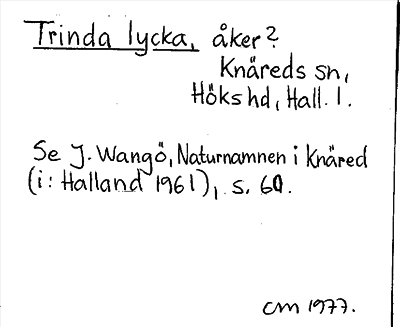 Trinda lycka, åker?
Knäreds sn,
Höks hd, Hall. l.
Se J. Wangö, Naturnamnen i Knäred
(i: Halland 1961), s. 60.
CM 1977.